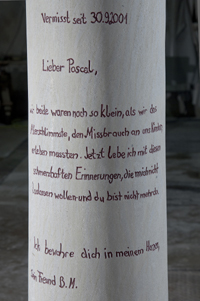 Vermisst seit 30.9.2001
Lieber Pascal,
wir beide waren noch so klein, als wir das
Allerschlimmste, den Missbrauch an uns Kindern
erleben mussten. Jetzt lebe ich mit diesen
schmerzhaften Erinnerungen, die mich nicht
loslassen wollen und du bist nicht mehr da.
Ich bewahre dich in meinem Herzen,
Dein Freund B.M.